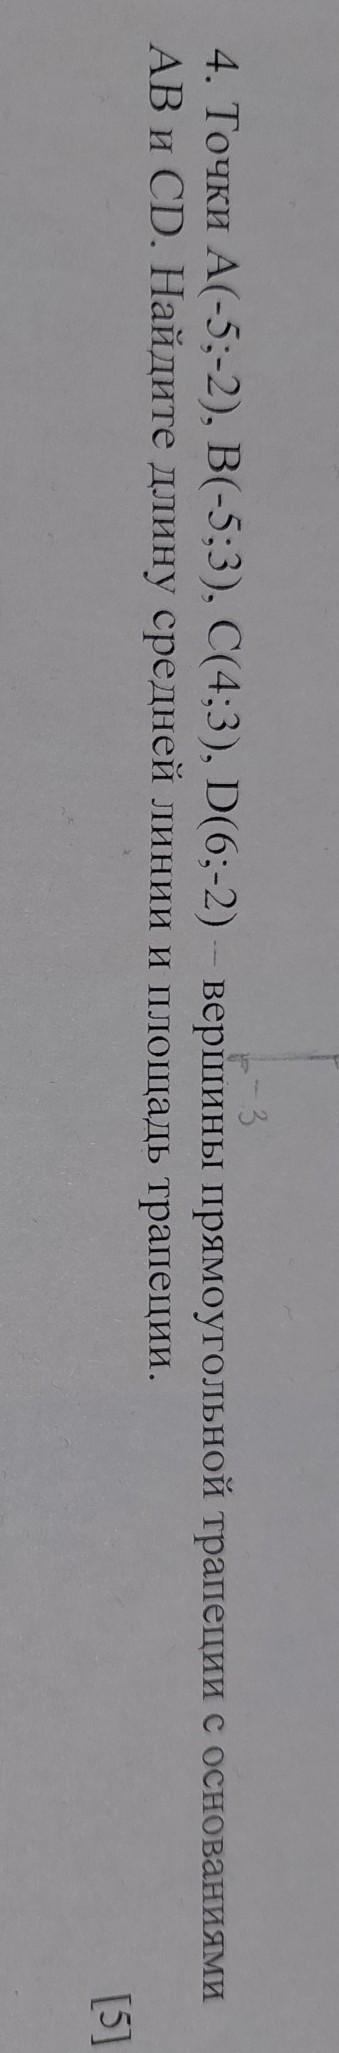 -3
4. Точки А(-5;-2), В(-5;3), С(4;3), D(6;-2) – вершины прямоугольной трапеции с основаниями
АВ и CD. Найдите длину средней линии и площадь трапеции.
[5]